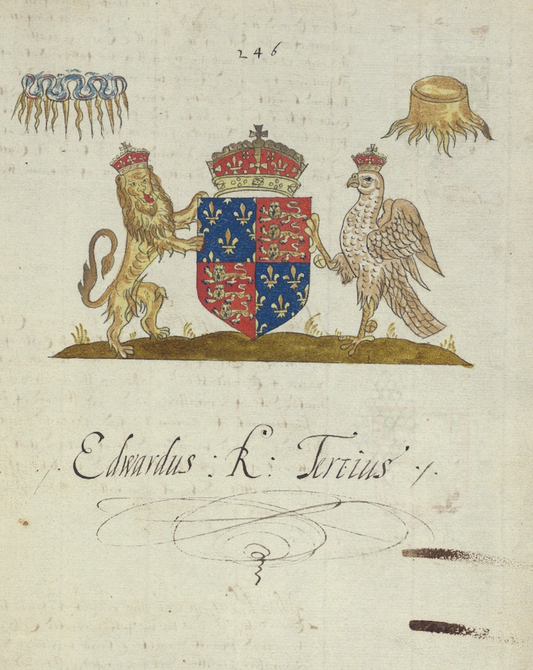 246
./. Edwardus : K : Tertius ./.